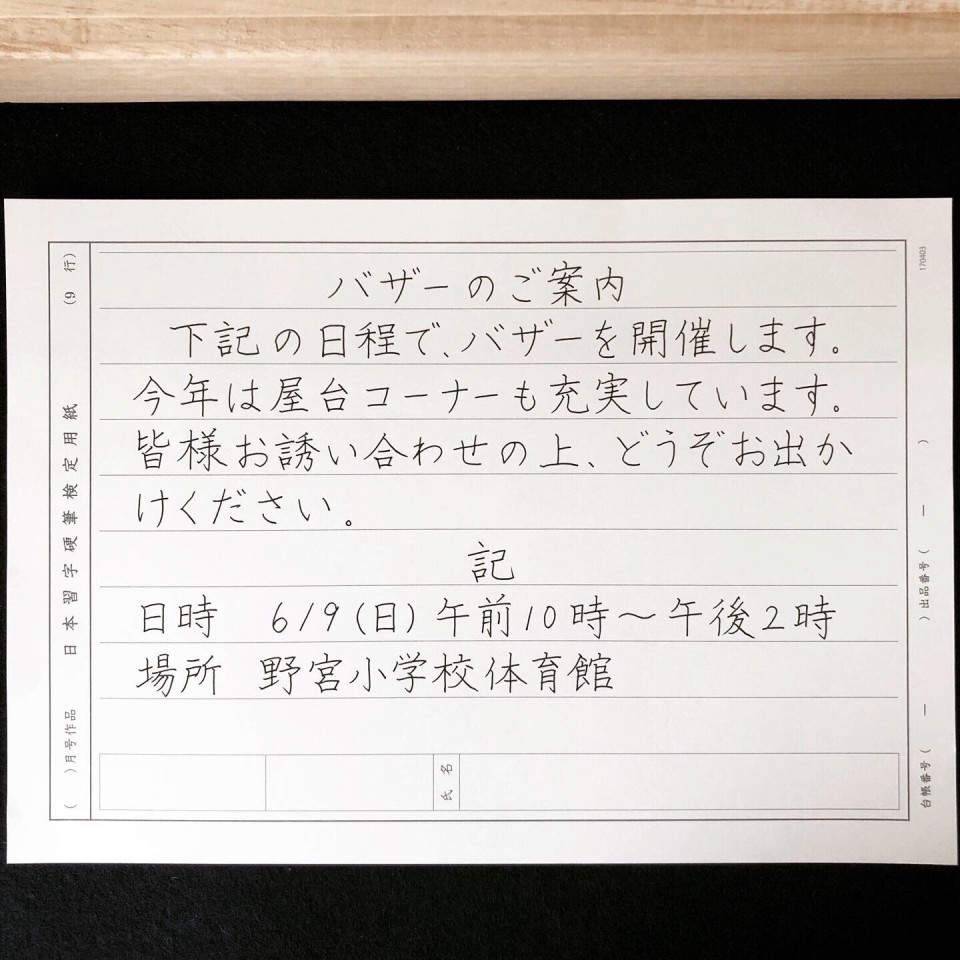 バザーのご案内
下記の日程で、バザーを開催します。
今年は屋台コーナーも充実しています。
皆様お誘い合わせの上、どうぞお出か
けください。
記
日時　6/9(日)午前10時〜午後2時
場所　野宮小学校体育館
氏名
(　)月号作品　日本習字硬筆検定用紙　(9 行)
台帳番号(　—　)出品番号(　—　)
170403